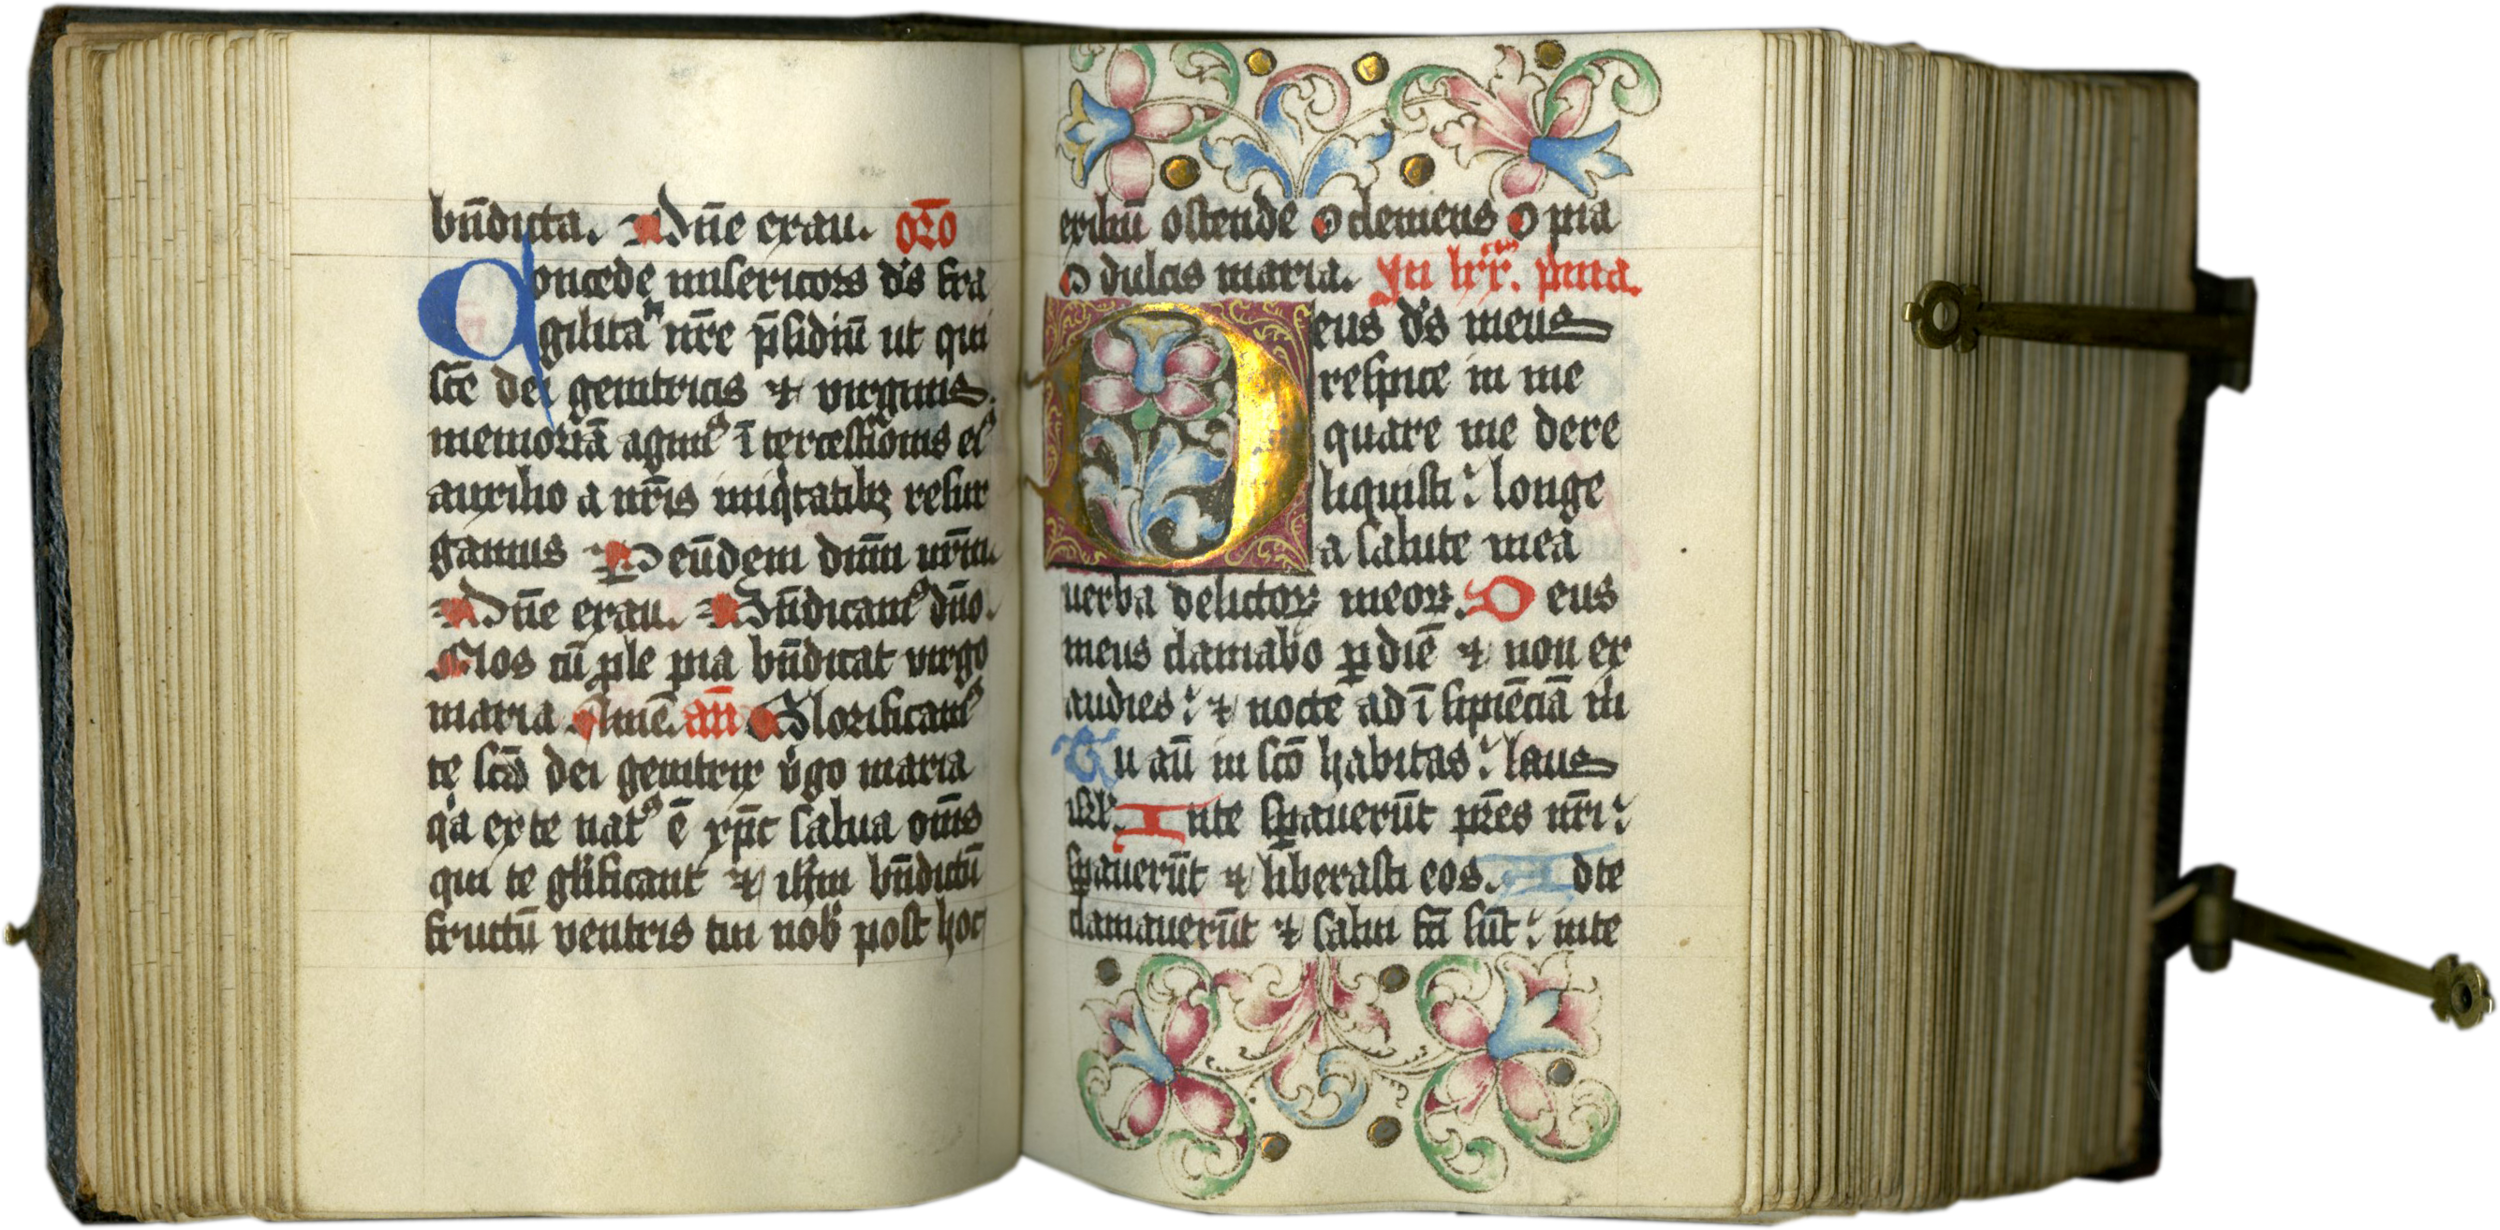 bn̄dicta. Dn̄e exau. oro̅
Concede misericors ds̄ fra
gilitati nr̄e p̄sidiū ut qui
scē dei genitricis ⁊ virginis
memoriā agimꝰ ītercessionis eiꝰ
auxilio a nr̄is iniqͥtatibꝫ resur
gamus P eūdem dn̄m nr̄m.
Dn̄e exau. Bn̄dicamꝰ dn̄o.
Nos cū ꝓle pia bn̄dicat virgo
maria Amē. an̄ Glorificamꝰ
te scā dei genitrix v̓go maria
qͥa ex te natꝰ ē xp̄c salua om̄s
qui te gl̓ificant ⁊ ih̄m bn̄dictū
fructū ventris tui nob̓ post hoc
exiliū ostende o clemens o pia
o dulcis maria. In prima.
Deus ds̄ meus
respice in me
quare me dere
liquisti: longe
a salute mea
uerba delictoꝝ meoꝝ. Deus
meus clamabo ꝑ diē ⁊ non ex
audies: ⁊ nocte ad īsipiēciā m̓
Tu aū in scō habitas: laus
isrl. In te sꝑauerūt pr̄es nr̄i:
sꝑauerūt ⁊ liberasti eos. Ad te
clamauerūt ⁊ salui fc̄i sūt: in te